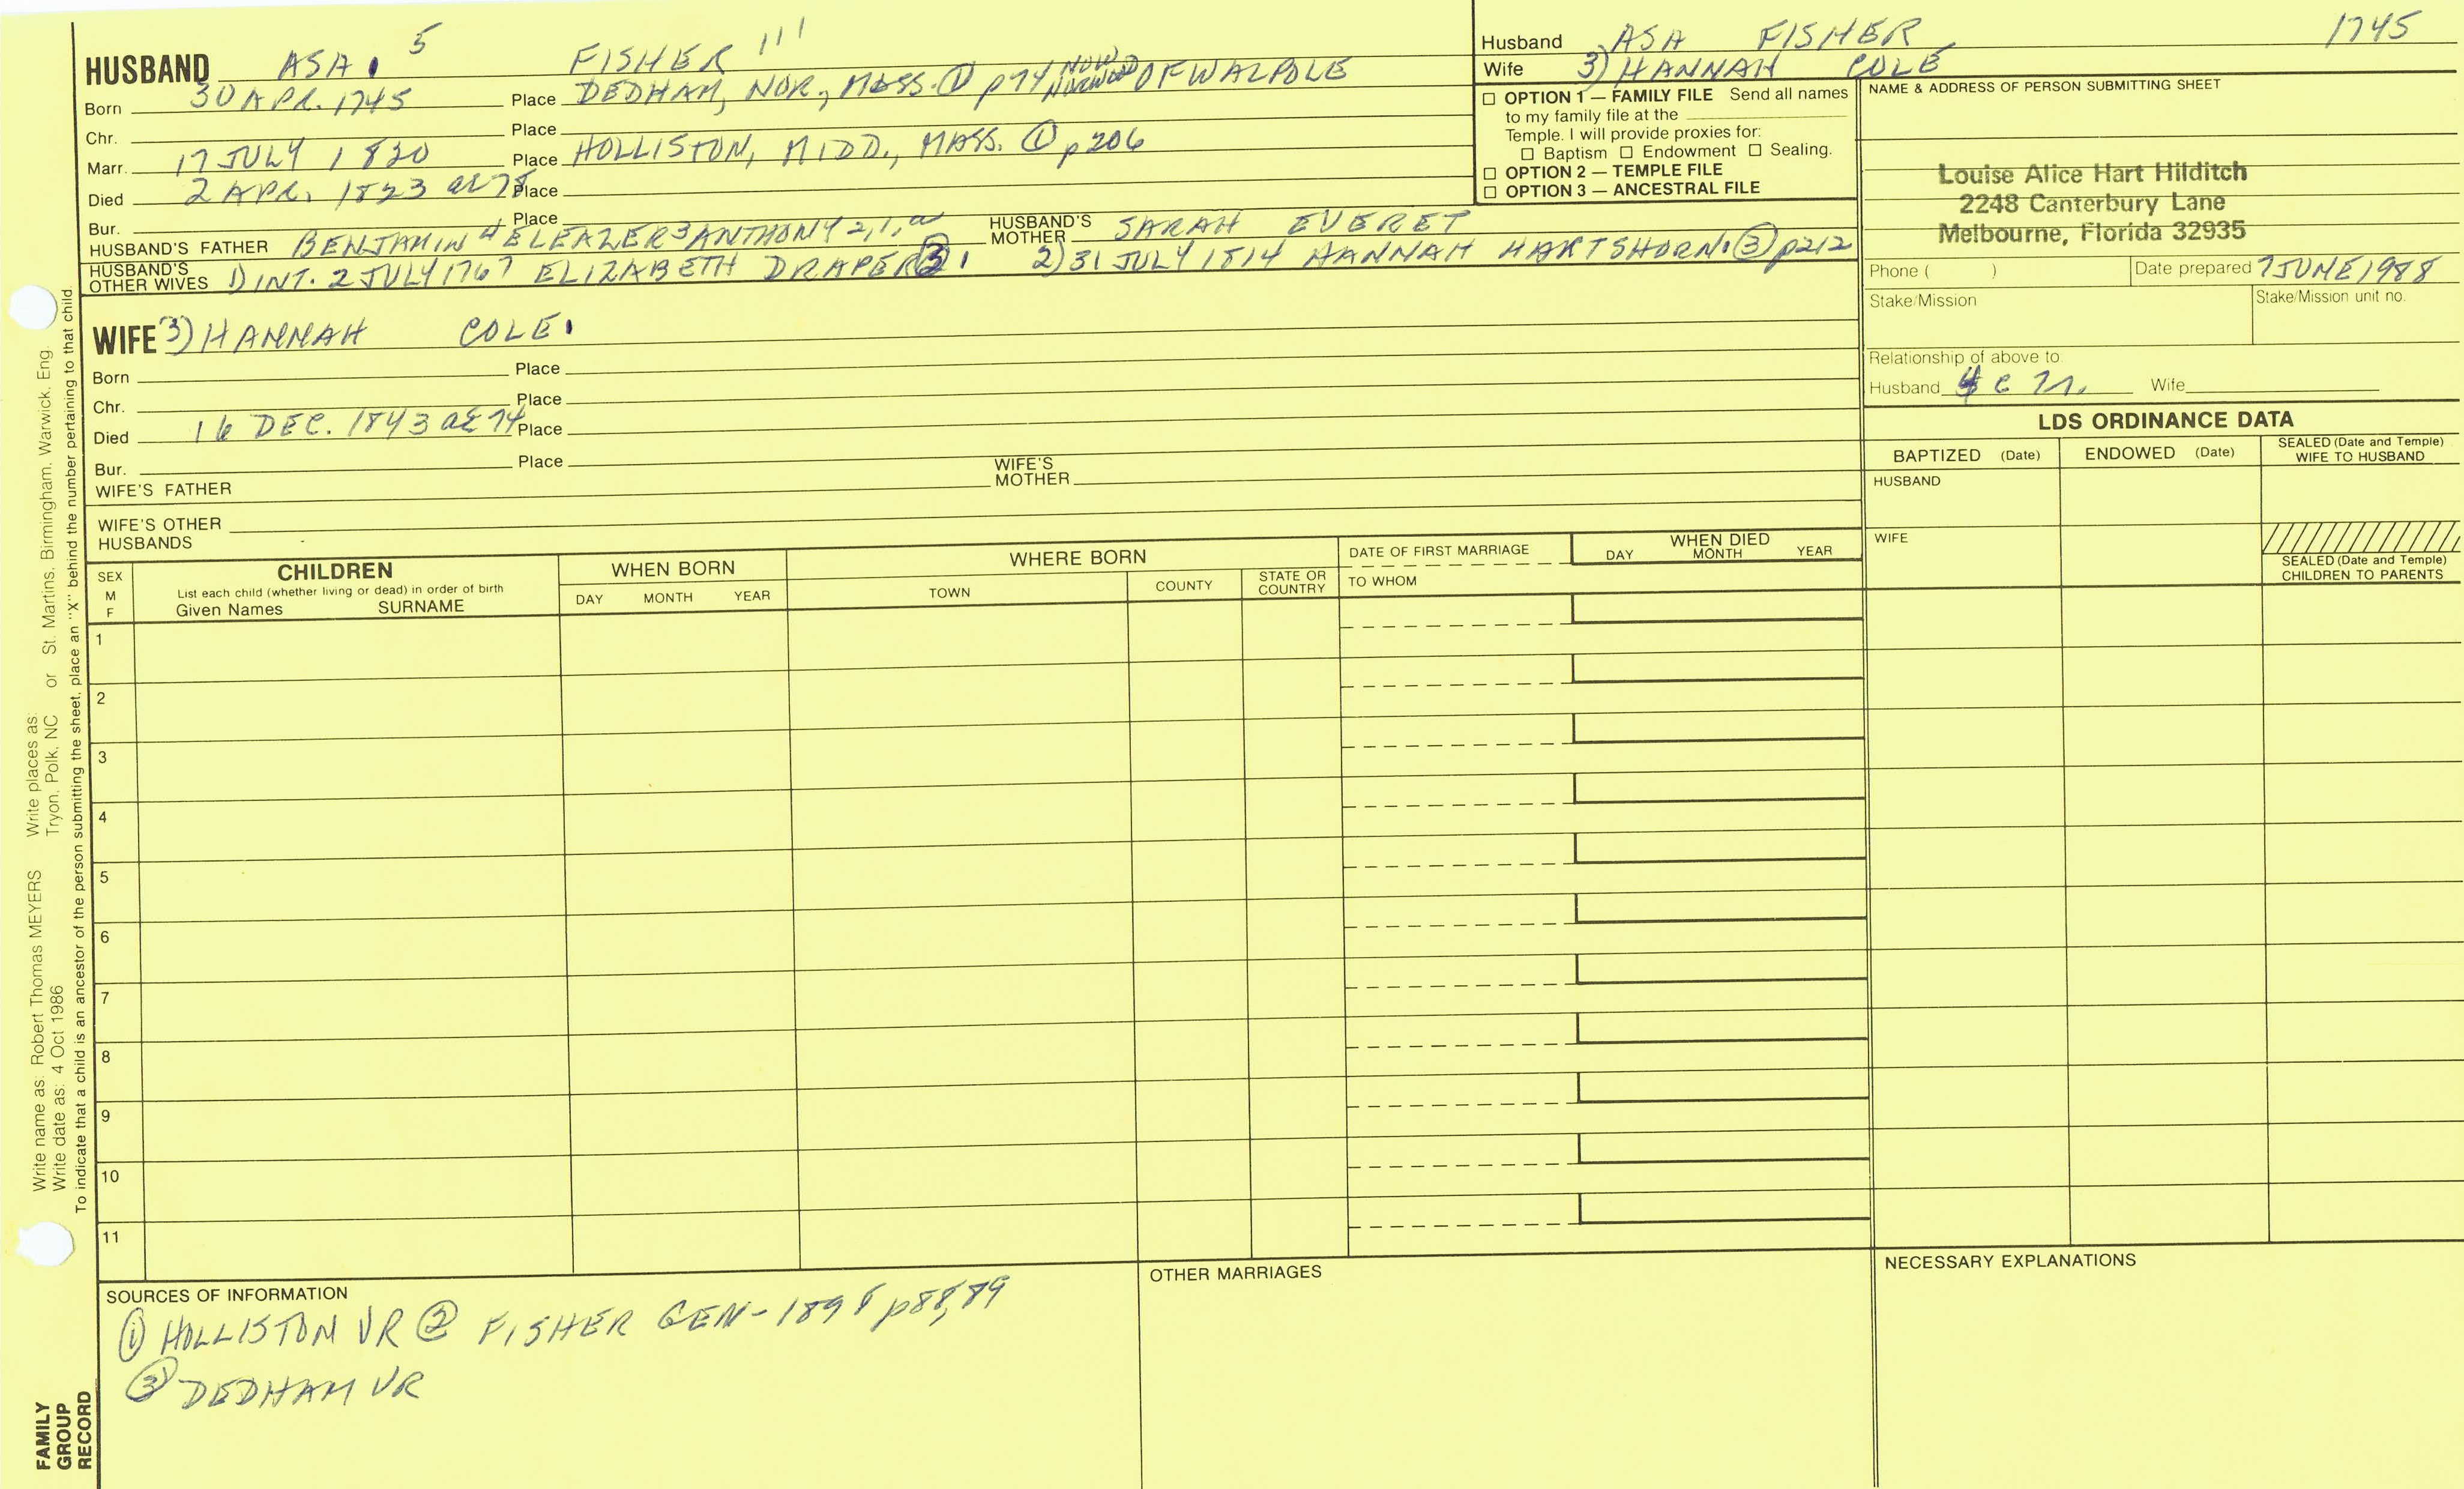 HUSBAND ASA 5 FISHER 111
Born 30 APR. 1745 Place DEDHAM, NOR., MASS. ① p74 NOW NORWOOD OF WALPOLE
Chr. Place
Marr. 17 JULY 1820 Place HOLLISTON, MIDD., MASS. ① p206
Died 2 APR. 1823 ae 78 Place
Bur. Place
HUSBAND'S FATHER BENJAMIN 4 ELEAZER 3 ANTHONY 2,1,a HUSBAND'S MOTHER SARAH EVERET
HUSBAND'S OTHER WIVES 1) INT. 2 JULY 1767 ELIZABETH DRAPER ③ 2) 31 JULY 1814 HANNAH HARTSHORN. ③ p212
WIFE 3) HANNAH COLE
Born Place
Chr. Place
Died 16 DEC. 1843 ae 74 Place
Bur. Place
WIFE'S FATHER WIFE'S MOTHER
WIFE'S OTHER HUSBANDS
Husband ASA FISHER 1745
Wife 3) HANNAH COLE
☐ OPTION 1 — FAMILY FILE Send all names
to my family file at the
Temple. I will provide proxies for:
☐ Baptism ☐ Endowment ☐ Sealing.
☐ OPTION 2 — TEMPLE FILE
☐ OPTION 3 — ANCESTRAL FILE
NAME & ADDRESS OF PERSON SUBMITTING SHEET
Louise Alice Hart Hilditch
2248 Canterbury Lane
Melbourne, Florida 32935
Phone ( ) Date prepared 7 JUNE 1988
Stake/Mission Stake/Mission unit no.
Relationship of above to
Husband Wife
LDS ORDINANCE DATA
BAPTIZED (Date) ENDOWED (Date) SEALED (Date and Temple) WIFE TO HUSBAND
HUSBAND
WIFE
SEALED (Date and Temple) CHILDREN TO PARENTS
SEX M F
CHILDREN
List each child (whether living or dead) in order of birth
Given Names SURNAME
WHEN BORN
DAY MONTH YEAR
WHERE BORN
TOWN COUNTY STATE OR COUNTRY
DATE OF FIRST MARRIAGE
TO WHOM
WHEN DIED
DAY MONTH YEAR
1
2
3
4
5
6
7
8
9
10
11
SOURCES OF INFORMATION
① HOLLISTON VR ② FISHER GEN- 1898 p88,89
③ DEDHAM VR
OTHER MARRIAGES
NECESSARY EXPLANATIONS
FAMILY GROUP RECORD
Write name as: Robert Thomas MEYERS Write places as: Tryon, Polk, NC or St. Martins, Birmingham, Warwick, Eng.
Write date as: 4 Oct 1986
To indicate that a child is an ancestor of the person submitting the sheet, place an "X" behind the number pertaining to that child.